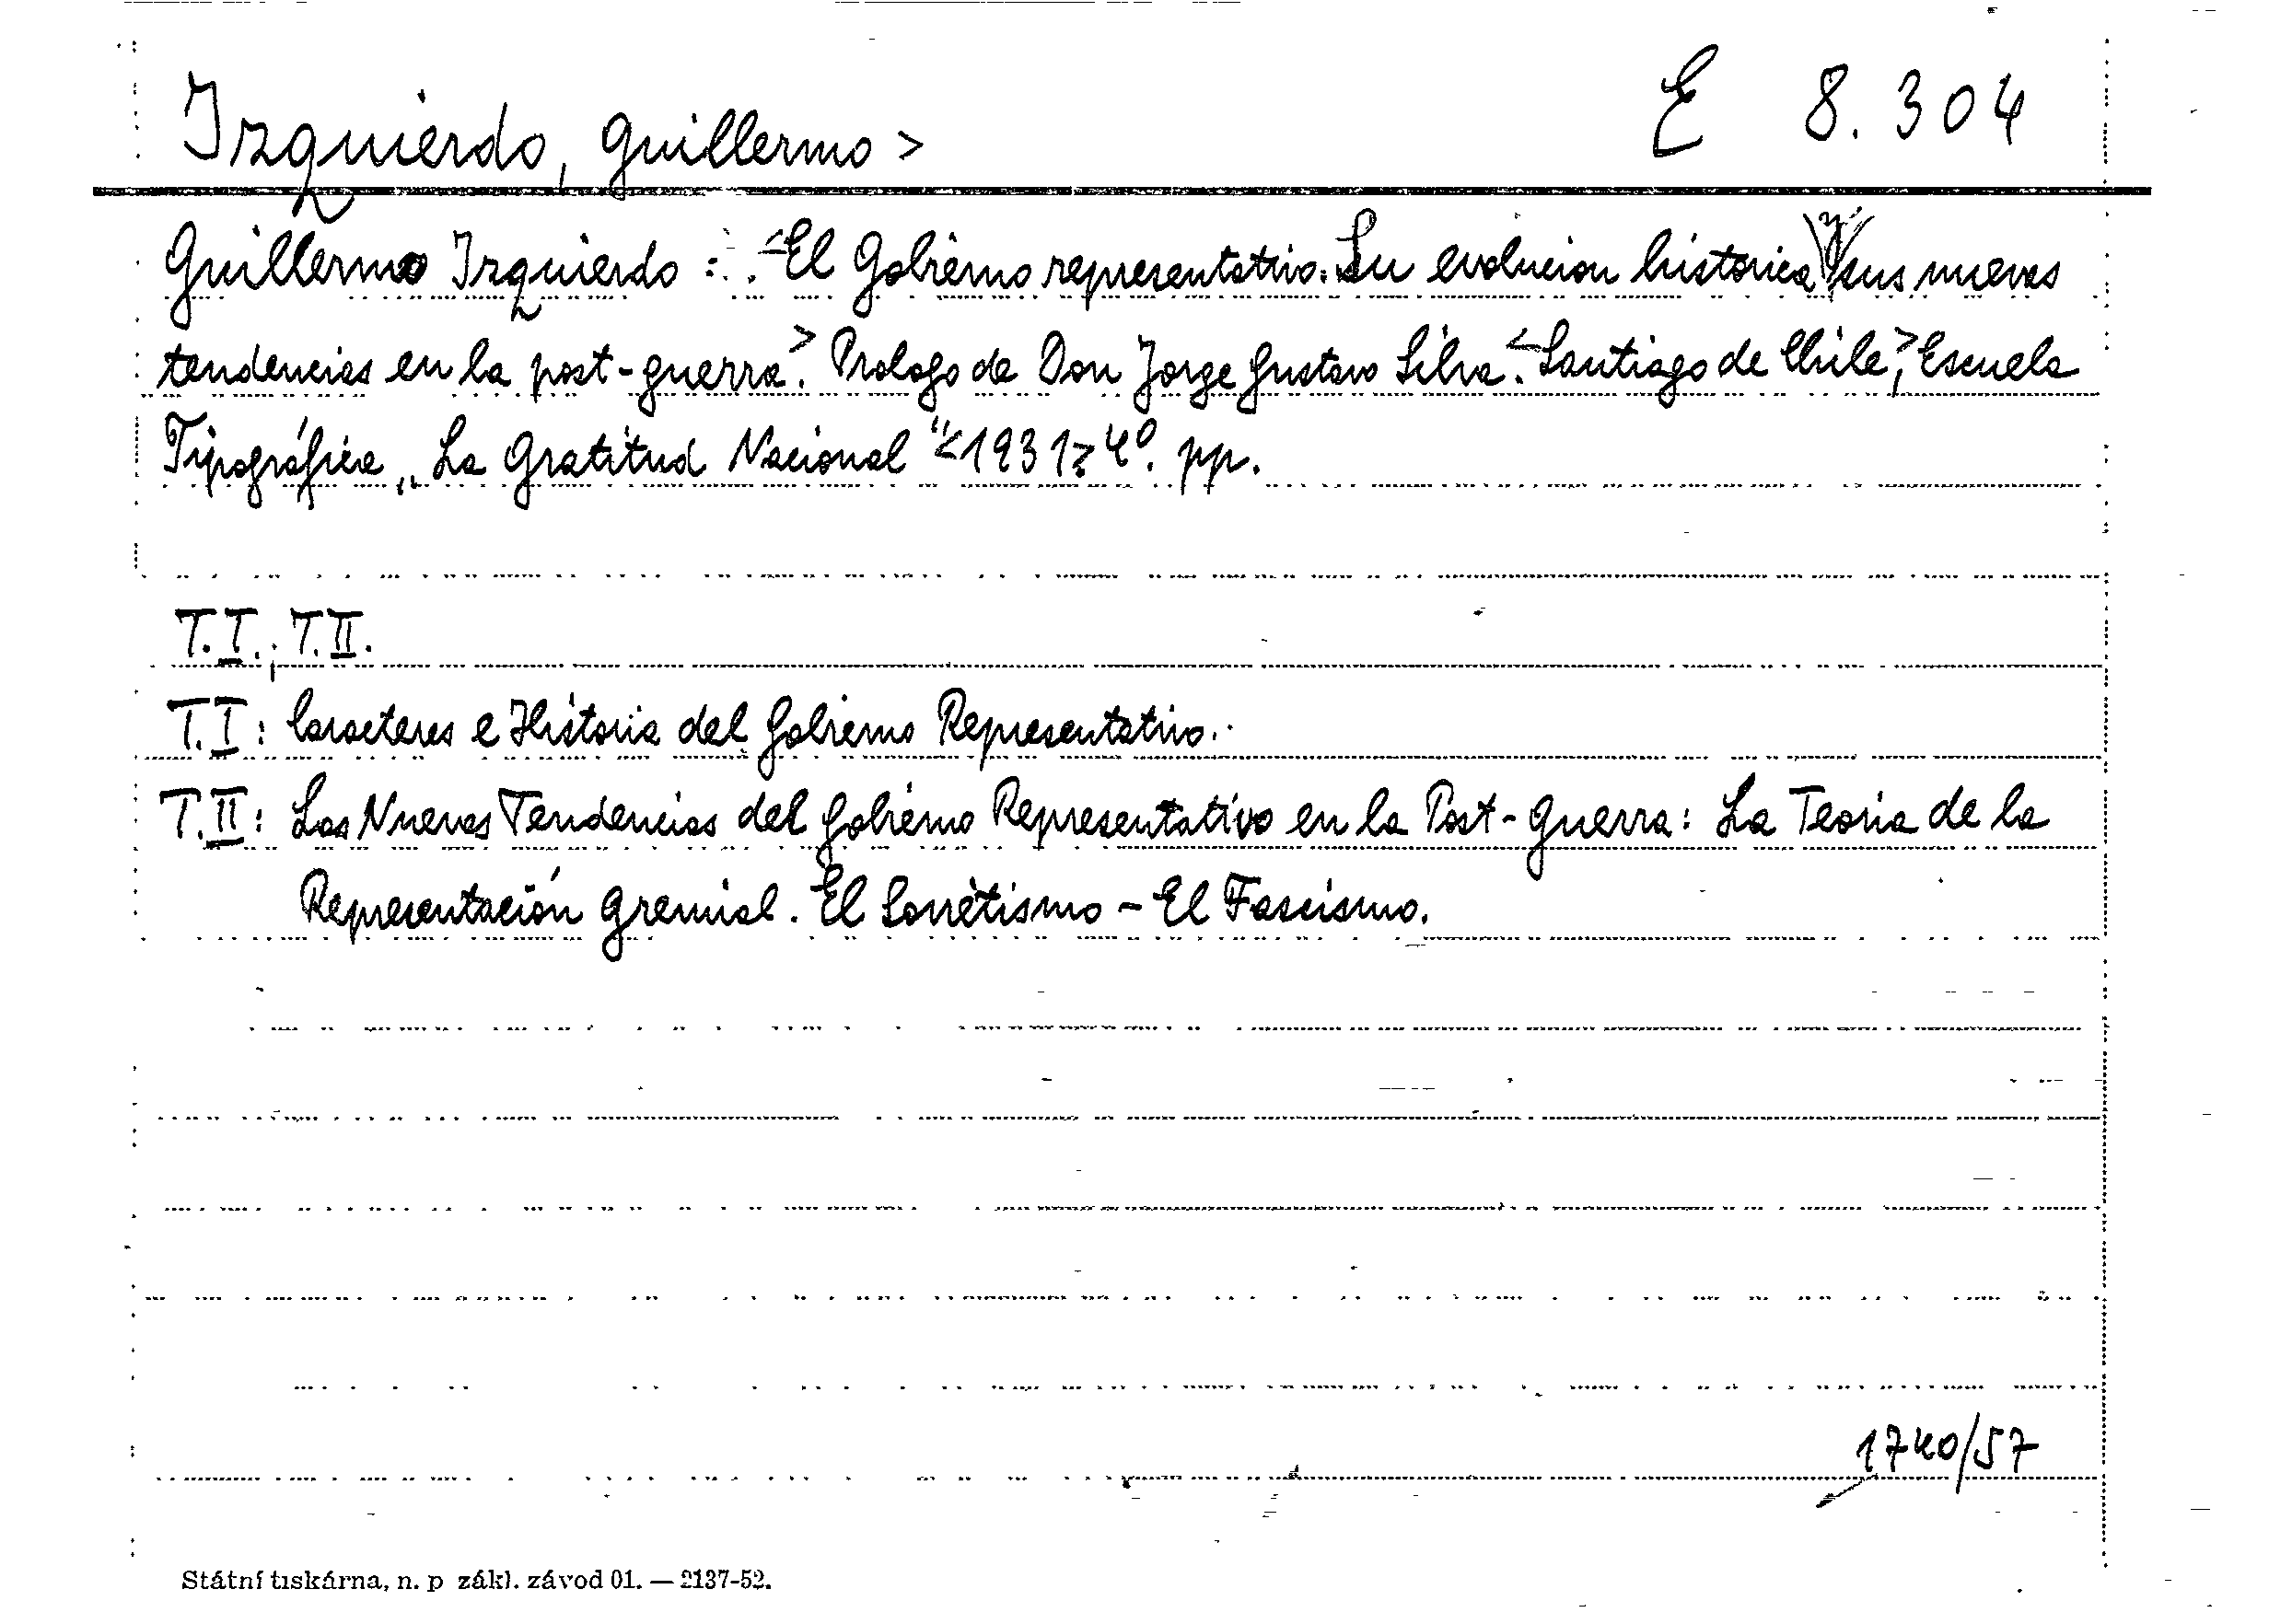 Izquierdo, Guillermo >
E 8.304
Guillermo Izquierdo : <El Gobierno representativo. Su evolucion historica y sus nuevas
tendencias en la post-guerra>. Prologo de Don Jorge Gustavo Silva. <Santiago de Chile>, Escuela
Tipográfica „La Gratitud Nacional“ <1931> 4º. pp.
T.I., T.II.
T.I: Caracteres e Historia del Gobierno Representativo.
T.II: Las Nuevas Tendencias del Gobierno Representativo en la Post-Guerra: La Teoria de la
Representación Gremial. El Sovietismo - El Fascismo.
1740/57
Státní tiskárna, n. p zákl. závod 01. — 2137-52.